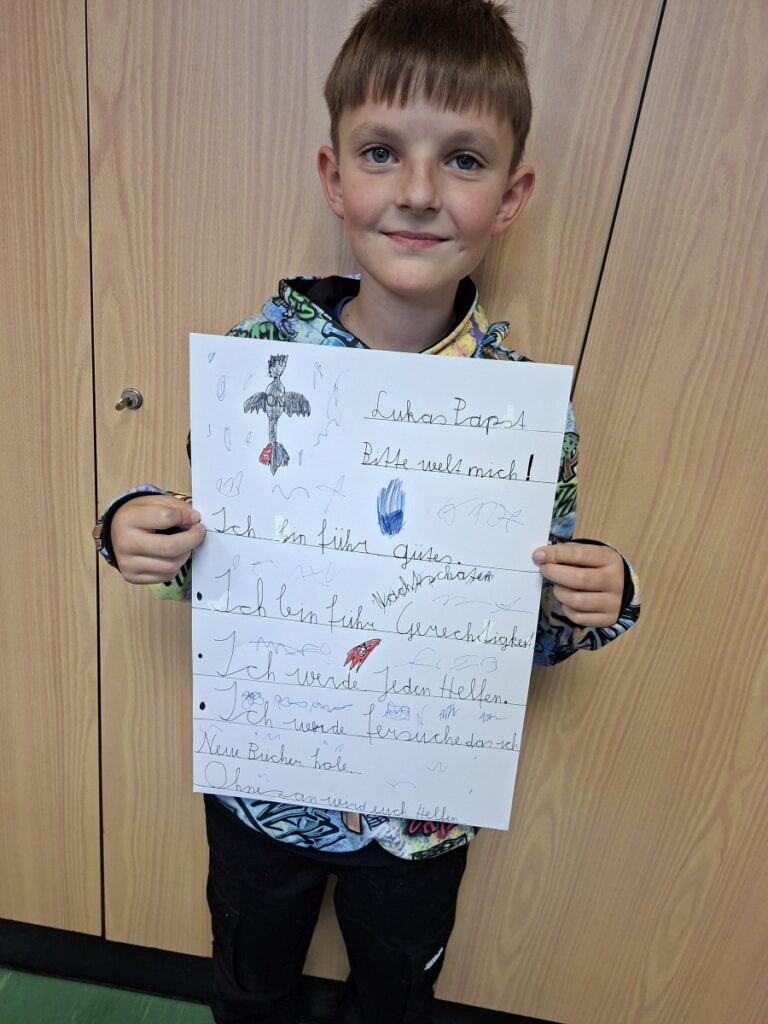 Lukas Papst
Bitte welt mich!
Ich bin führ gütes.
Nachtschaten
Ich bin führ Gerechtigkeit
Ich werde Jeden Helfen.
Ich werde fersuche das ich
Neue Bücher hole.
Ohnezan wird euch Helfen